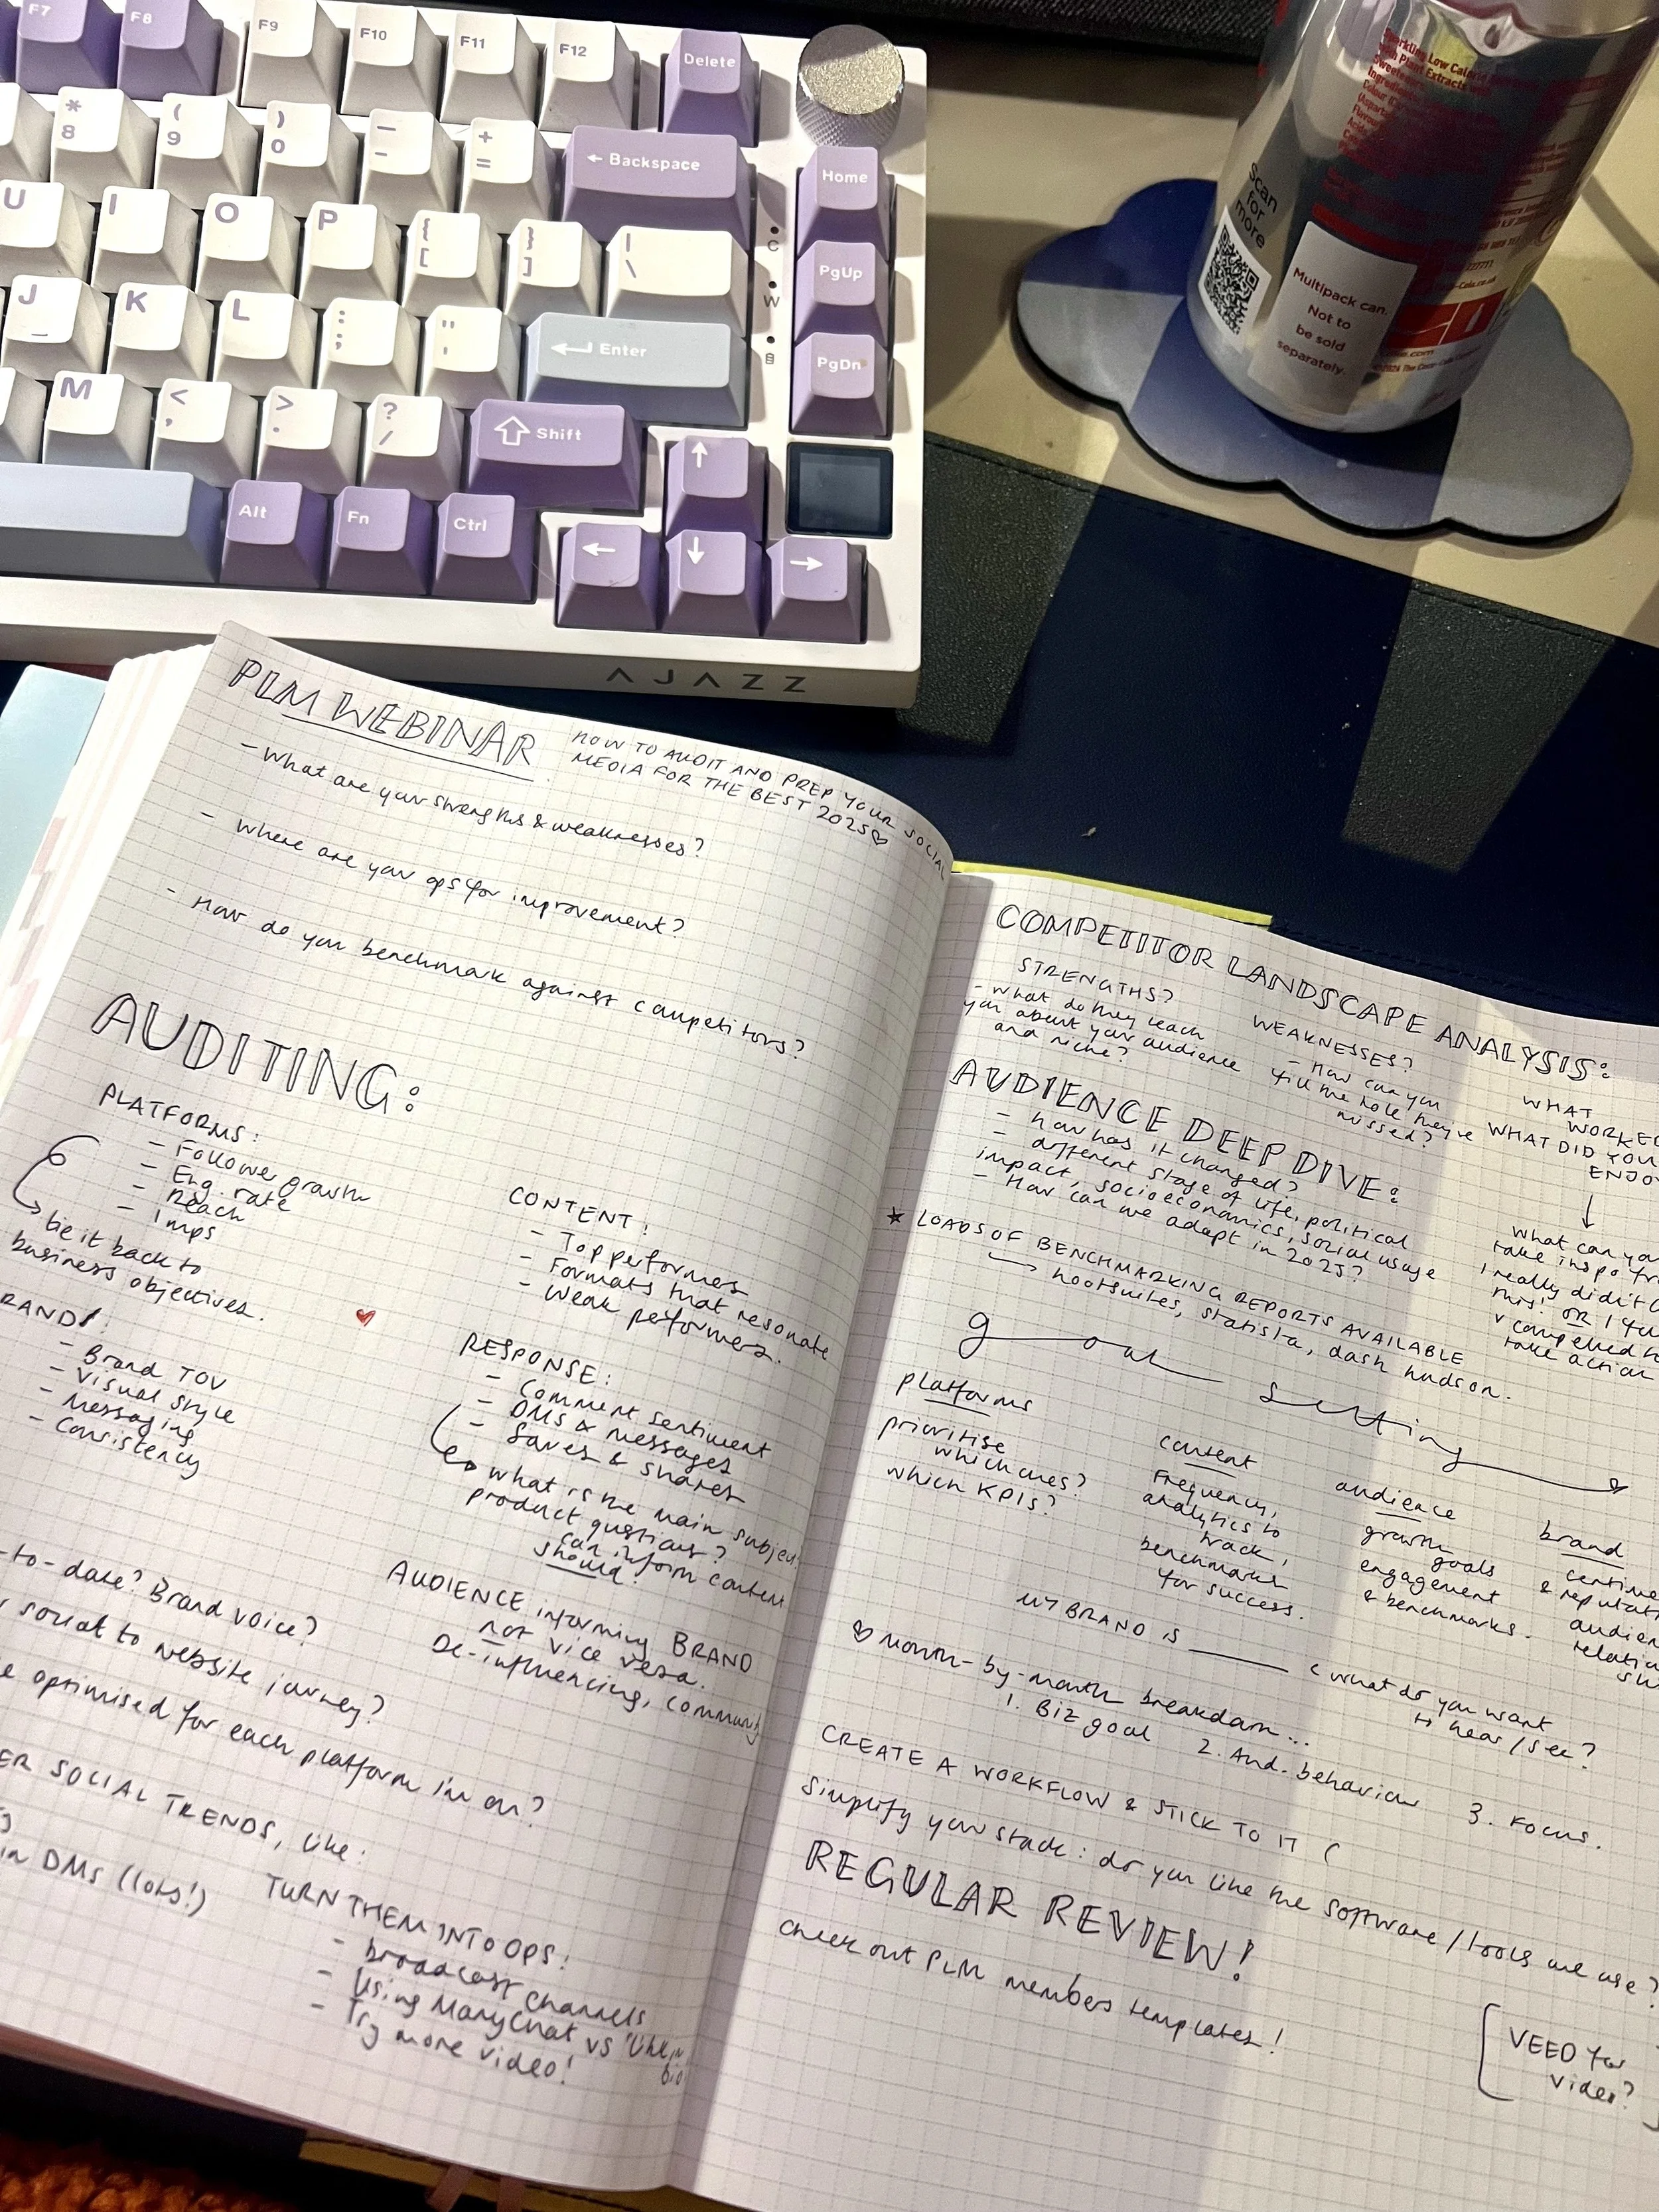 F7 F8 F9 F10 F11 F12 Delete
* 8 ( 9 ) 0 — - + =
← Backspace
Home
U I O P { [ } ] | \
PgUp
J K L : ; " '
Enter
PgDn
M < , > . ? /
Shift
Alt Fn Ctrl
C
W
B
AJAZZ
Sparkling Low Calorie
Plant Extracts
Sweeteners
Scan
for
more
Multipack can.
Not to
be sold
separately.
PLM WEBINAR
HOW TO AUDIT AND PREP YOUR SOCIAL
MEDIA FOR THE BEST 2025♡
- What are your strengths & weaknesses?
- Where are your ops for improvement?
- How do you benchmark against competitors?
AUDITING:
PLATFORMS:
- Follower growth
- Eng. rate
- Reach
- Imps
tie it back to
business objectives.
RAND!:
- Brand TOV
- Visual style
- Messaging
- Consistency
CONTENT:
- Top performers
- Formats that resonate
- Weak performers.
RESPONSE:
- Comment sentiment
- DMs & messages
- Saves & shares
what is the main subject
product questions?
can inform content
should!
AUDIENCE informing BRAND
not vice versa.
De-influencing, community
-to-date? Brand voice?
social to website journey?
optimised for each platform I'm on?
ER SOCIAL TRENDS, like:
in DMs (lots!)
TURN THEM INTO OPS:
- broadcast channels
- Using ManyChat vs 'link in bio
- Try more video!
COMPETITOR LANDSCAPE ANALYSIS:
STRENGTHS?
- What do they teach
you about your audience
and niche?
WEAKNESSES?
- How can you
fill the hole they've
missed?
WHAT
WORKED
WHAT DID YOU
ENJOY
What can you
take inspo fr
I really didn't
this! OR I
v compelled to
take action
AUDIENCE DEEP DIVE:
- how has it changed?
- different stage of life, political
impact, socioeconomics, social usage
- How can we adapt in 2025?
★ LOADS OF BENCHMARKING REPORTS AVAILABLE
hootsuites, statista, dash hudson.
goal setting
platforms
prioritise
which ones?
which KPIs?
content
Frequency,
analytics to
track,
benchmarks
for success.
audience
growth
goals
engagement
& benchmarks.
brand
sentime
& reputati
audien
relatio
MY BRAND IS ______ < what do you want
to hear / see?
♡ Month-by-month breakdown...
1. Biz goal 2. Aud. behaviour 3. Focus.
CREATE A WORKFLOW & STICK TO IT (
Simplify your stack: do you like the software / tools we use?
REGULAR REVIEW!
check out PLM members templates!
[VEED for
video?